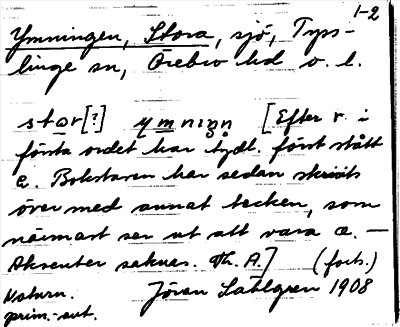 1-2
Ymningen, Stora, sjö, Tyss-
linge sn, Örebro hd o. l.
star[?] ymniŋn [Efter r i
första ordet har tydl. först stått
e. Bokstaven har sedan skrivits
över med annat tecken, som
närmast ser ut att vara a. —
Aksenter saknas. Th. A.] (forts.)
Naturn. Jöran Sahlgren 1908
prim.-uut.